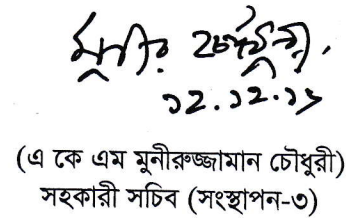 মুনীর চৌধুরী
১২.১২.১৬
(এ কে এম মুনীরুজ্জামান চৌধুরী)
সহকারী সচিব (সংস্থাপন-৩)